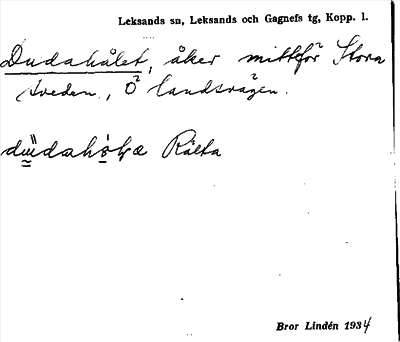 Leksands sn, Leksands och Gagnefs tg, Kopp. l.
Dudahålet, åker mittför Stora
Sveden, Ö landsvägen.
Rälta
Bror Lindén 1934